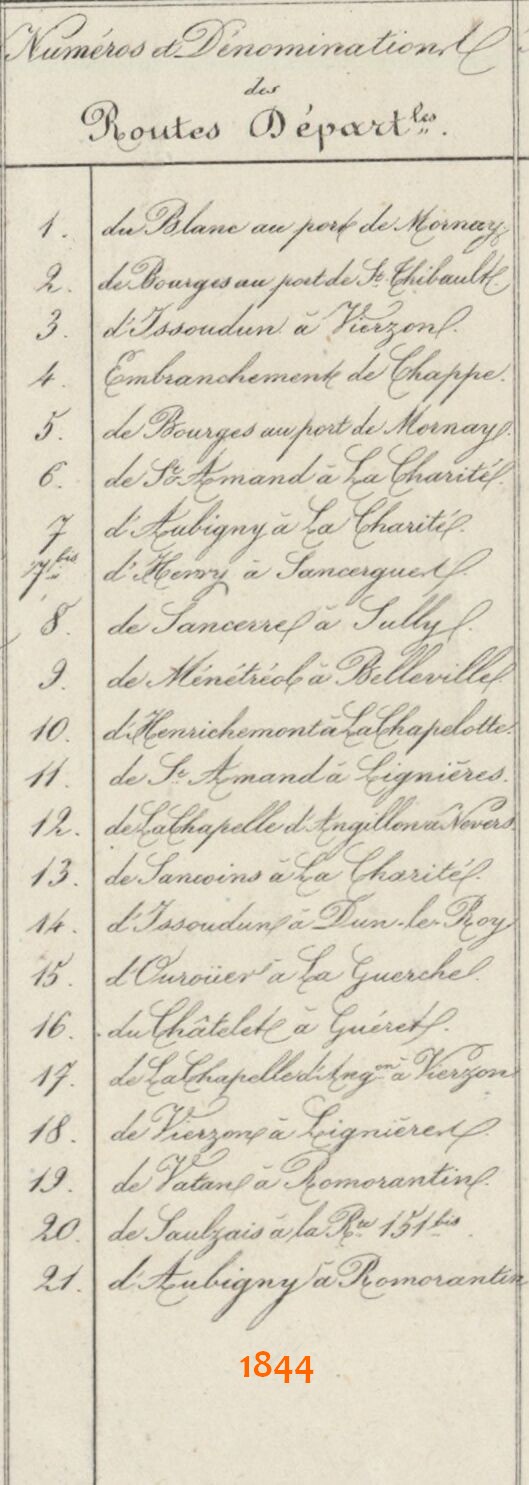 Numéros et Dénominations
des
Routes Départ.les
1. du Blanc au port de Mornay.
2. de Bourges au port de St. Thibault.
3. d'Issoudun à Vierzon.
4. Embranchement de Chappe.
5. de Bourges au port de Mornay.
6. de St. Amand à La Charité.
7 d'Aubigny à La Charité.
7bis d'Henry à Sancergues.
8. de Sancerre à Sully.
9. de Ménétréol à Belleville.
10. d'Henrichemont à La Chapelotte.
11. de St. Amand à Lignières.
12. de La Chapelle d'Angillon à Nevers.
13. de Sancoins à La Charité.
14. d'Issoudun à Dun-le-Roy
15. d'Ouroüer à La Guerche.
16. du Châtelet à Guéret.
17. de La Chapelle d'Ang.on à Vierzon
18. de Vierzon à Lignières.
19. de Vatan à Romorantin.
20. de Saulzais à la Rte 151bis.
21. d'Aubigny à Romorantin
1844